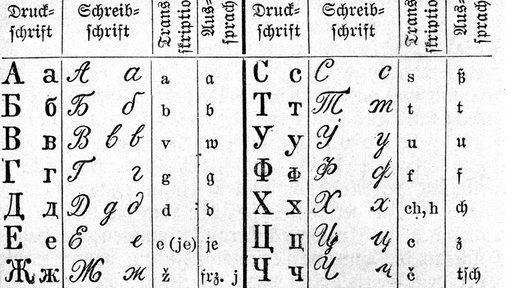 Druck-
schrift Schreib-
schrift Trans
skriptio Aus-
sprach Druck-
schrift Schreib-
schrift Trans
skriptio Aus-
sprach
А а А а a a С с С с s ß
Б б Б б b b Т т Т т t t
В в В в в v w У у У у u u
Г г Г г g g Ф ф Ф ф f f
Д д Д д д d d Х х Х х ch, h ch
Е е Е е e (je) je Ц ц Ц ц c z
Ж ж Ж ж ž frz. j Ч ч Ч ч č tsch